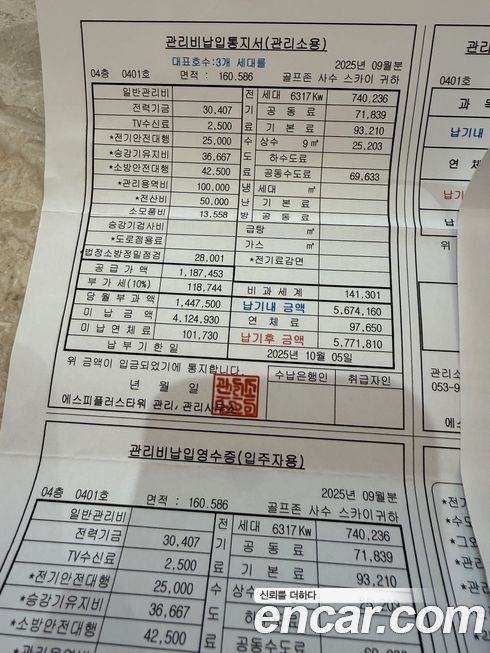 관리비납입통지서(관리소용)
대표호수:3개 세대를 2025년 09월분
04층 0401호 면적 : 160.586 골프존 사수 스카이 귀하
일반관리비 전 세대 6317Kw 740,236
전력기금 30,407 기 공동료 71,839
TV수신료 2,500 료 기본료 93,210
*전기안전대행 25,000 수 상수 9㎥ 25,203
*승강기유지비 36,667 도 하수도료
*소방안전대행 42,500 료 공동수도료 69,633
*관리용역비 100,000 냉 세대 ㎥
*전산비 50,000 난 기본료
소모품비 13,558 방 공동료
승강기검사비 급탕 ㎥
*도로점용료 가스 ㎥
법정소방정밀점검 28,001 *전기료감면
공급가액 1,187,453
부가세(10%) 118,744 비과세계 141,301
당월부과액 1,447,500 납기내 금액 5,674,160
미납금액 4,124,930 연체료 97,650
미납연체료 101,730 납기후 금액 5,771,810
납부기한일 2025년 10월 05일
위 금액이 입금되었기에 통지합니다.
년 월 일 수납은행인 취급자인
에스피플러스타워 관리 관리사무소
관리비납입영수증(입주자용)
2025년 09월분
04층 0401호 면적 : 160.586 골프존 사수 스카이귀하
일반관리비 전 세대 6317Kw 740,236
전력기금 30,407 기 공동료 71,839
TV수신료 2,500 료 기본료 93,210
*전기안전대행 25,000 수 상수
*승강기유지비 36,667 도
*소방안전대행 42,500 료 공동수도료
관리
과목
납기내
연체
납기
위
053-9
에스피
신뢰를 더하다
encar.com